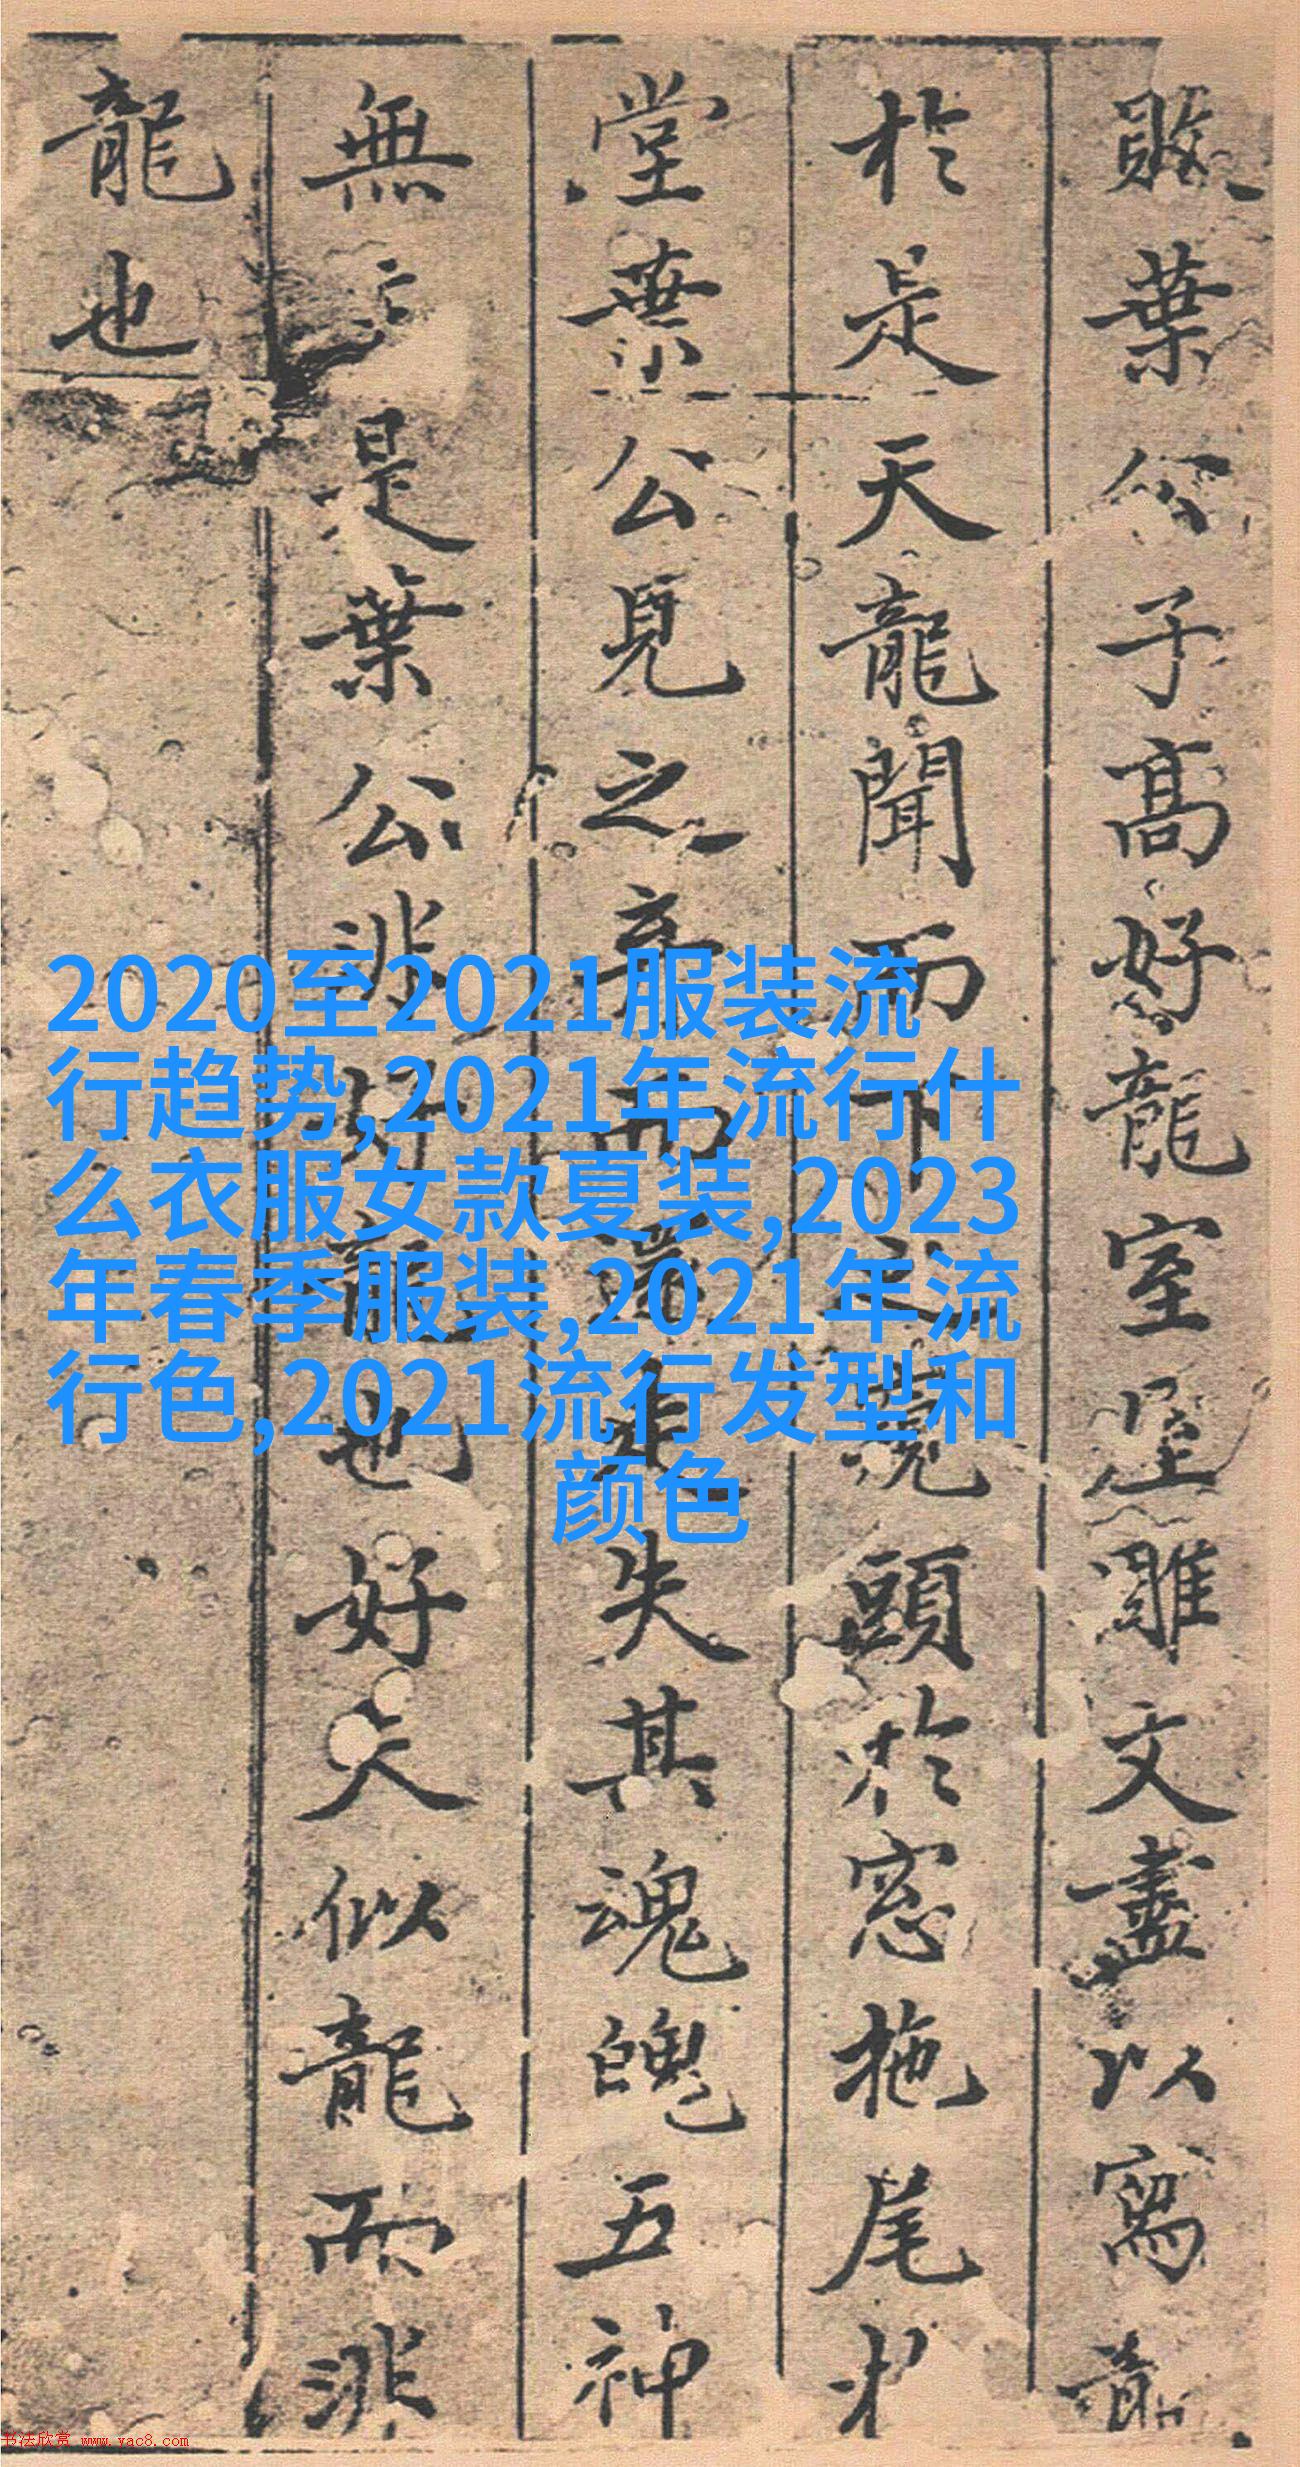 葉公子高好龍室雕文盡以寫龍
於是天龍聞而下之窺頭於窓拖尾於
堂葉公見之棄而還走失其魂魄五神
無主是葉公非好龍也好夫似龍而非
龍也
2020至2021服装流
行趋势,2021年流行什
么衣服女款夏装,2023
年春季服装,2021年流
行色,2021流行发型和
颜色
书法欣赏 www.yac8.com